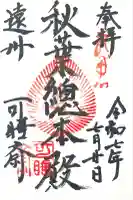 奉拝
令和七年
七月廿日
秋葉總本殿
遠州
可睡斎